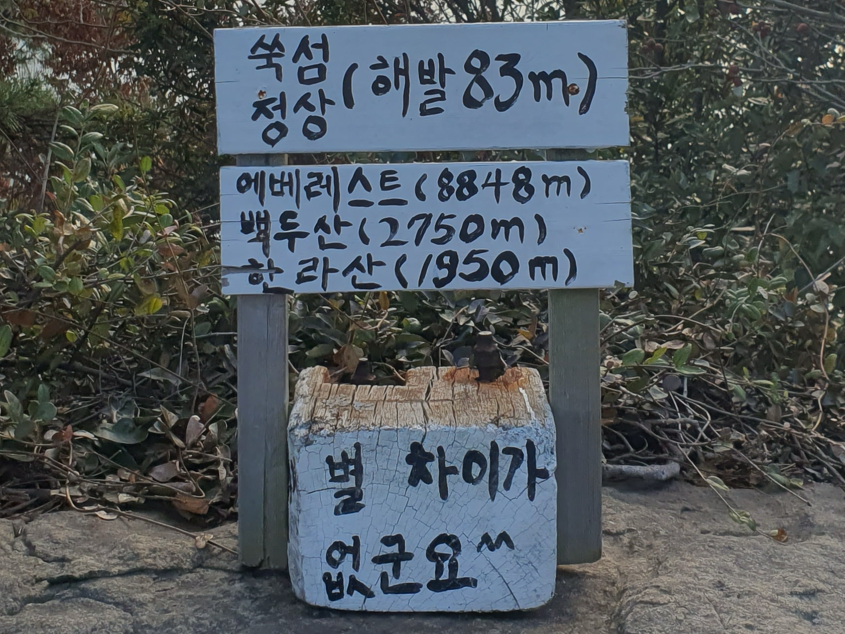 쑥섬
정상 (해발 83m)
에베레스트 (8848m)
백두산 (2750m)
한라산 (1950m)
별 차이가
없군요^^